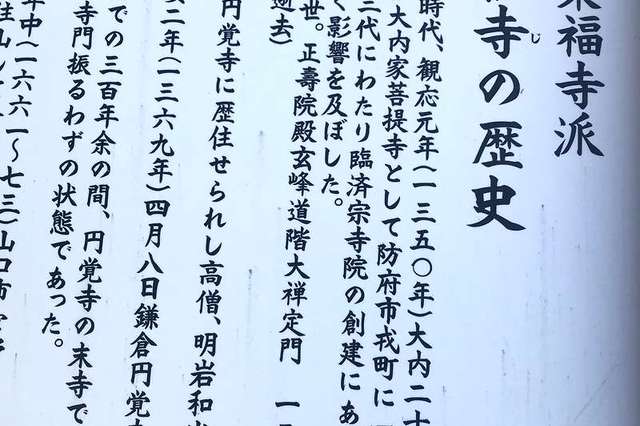 東福寺派
寺の歴史
じ
時代、観応元年(一三五〇年)大内二十
大内家菩提寺として防府市戎町に
三代にわたり臨済宗寺院の創建にあ
く影響を及ぼした。
世。正壽院殿玄峰道階大禅定門 一
逝去)
円覚寺に歴住せられし高僧、明岩和
二年(一三六九年)四月八日鎌倉円覚
での三百年余の間、円覚寺の末寺で
寺門振るわずの状態であった。
年中(一六六一~七三)山口市
住山し